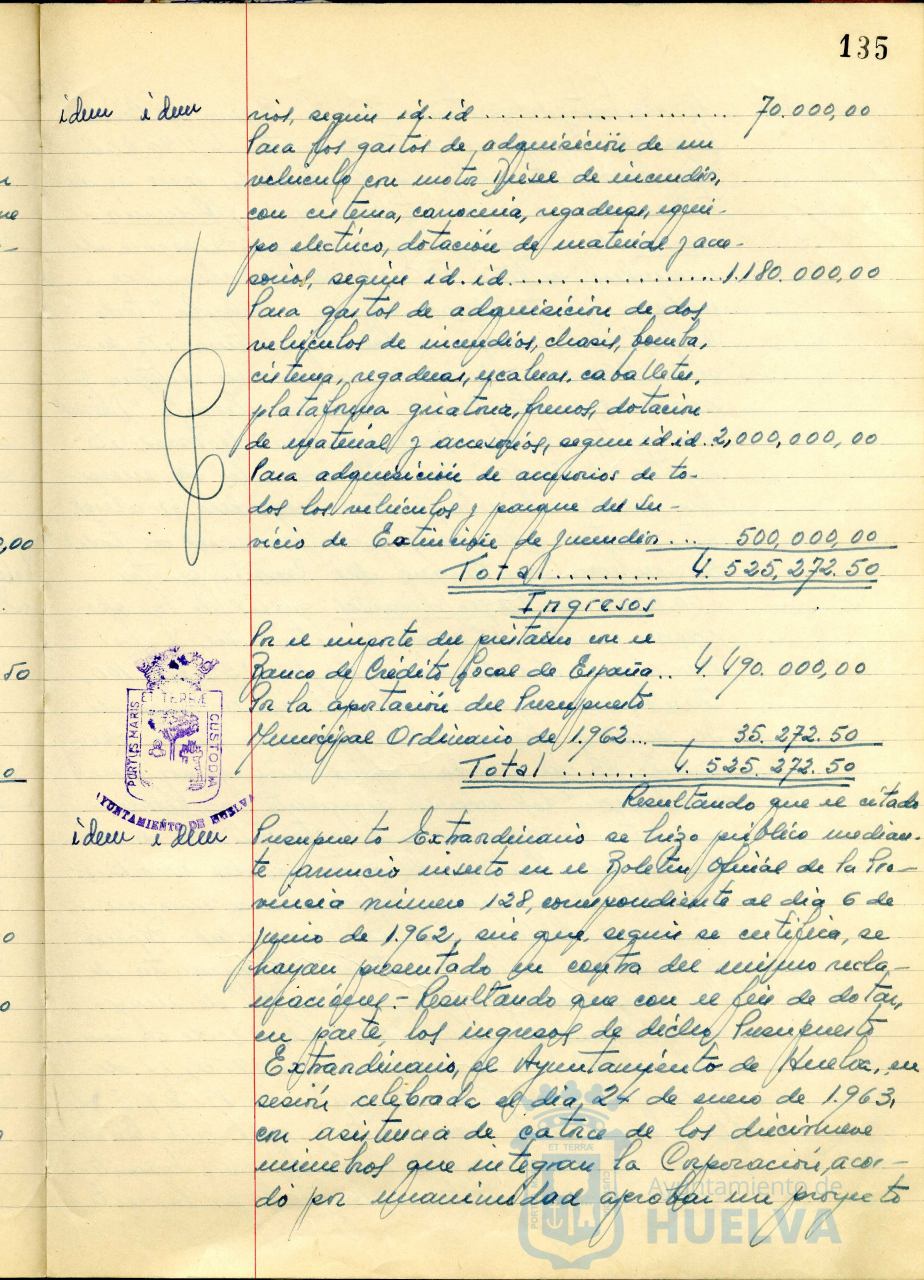 135
idem idem
rios, según id. id ................. 70.000,00
Para los gastos de adquisición de un
vehículo con motor Diesel de incendios,
con cisterna, carrocería, regaderas, equi-
po eléctrico, dotación de material y acce-
sorios, según id. id................. 1.180.000,00
Para gastos de adquisición de dos
vehículos de incendios, chasis, bomba,
cisterna, regaderas, escaleras, caballetes,
plataforma giratoria, frenos, dotación
de material y accesorios, según id id. 2,000,000,00
Para adquisición de accesorios de to-
dos los vehículos y parque del Ser-
vicio de Extinción de Incendios.... 500,000,00
Total ........ 4.525,272.50
Ingresos
Por el importe del préstamo con el
Banco de Crédito Local de España.. 4.490.000,00
Por la aportación del Presupuesto
Municipal Ordinario de 1.962... 35.272.50
Total ....... 4.525.272.50
PORTUS MARIS ET TERRE CUSTODIA
AYUNTAMIENTO DE HUELVA
Resultando que el citado
idem idem
Presupuesto Extraordinario se hizo público median-
te anuncio inserto en el Boletín Oficial de la Pro-
vincia número 128, correspondiente al día 6 de
junio de 1.962, sin que, según se certifica, se
hayan presentado en contra del mismo recla-
maciones.- Resultando que con el fin de dotar,
en parte, los ingresos de dicho Presupuesto
Extraordinario, el Ayuntamiento de Huelva, en
sesión celebrada el día 24 de enero de 1.963,
con asistencia de catorce de los diecinueve
miembros que integran la Corporación, acor-
dó por unanimidad aprobar un proyecto
Ayuntamiento de
HUELVA